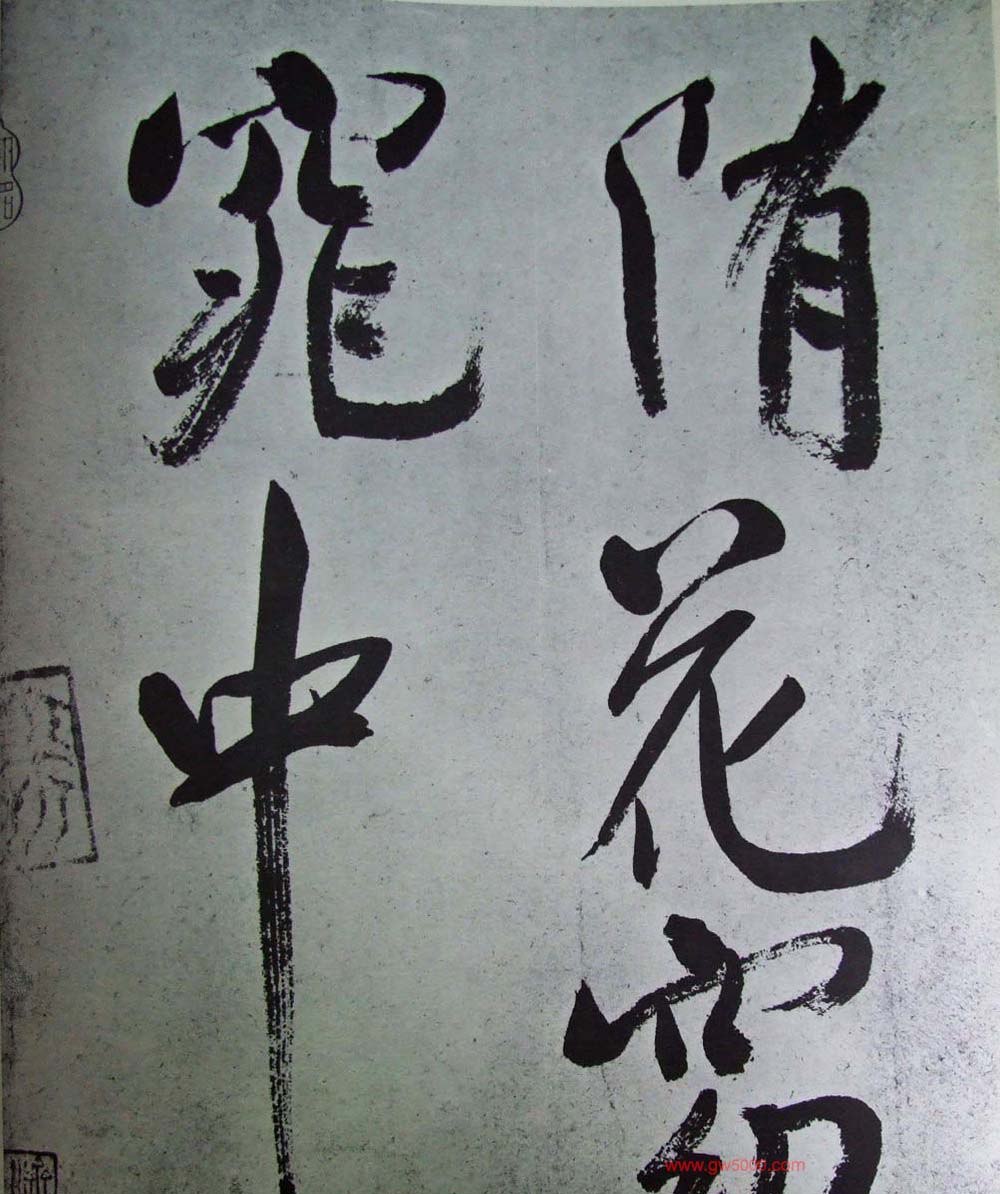 隋花窈
窕中
www.gw5000.com